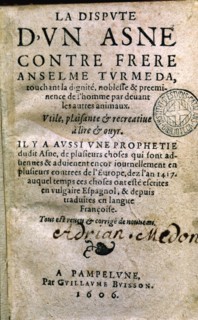 LA DISPVTE
D'VN ASNE
CONTRE FRERE
ANSELME TVRMEDA,
touchant la dignité, noblesse & preemi-
nence de l'homme par deuant
les autres animaux.
Vtile, plaisante & recreatiue
à lire & ouyr.
IL Y A AVSSI VNE PROPHETIE
dudit Asne, de plusieurs choses qui sont ad-
uenues & aduienent encor iournellement en
plusieurs contrees de l'Europe, dez l'an 1417.
auquel temps ces choses ont esté escrites
en vulgaire Espagnol, & depuis
traduites en langue
Françoise.
Tout est reueu & corrigé de nouueau.
Adrian
A PAMPELVNE,
Par GVILLAVME BVISSON.
1606.